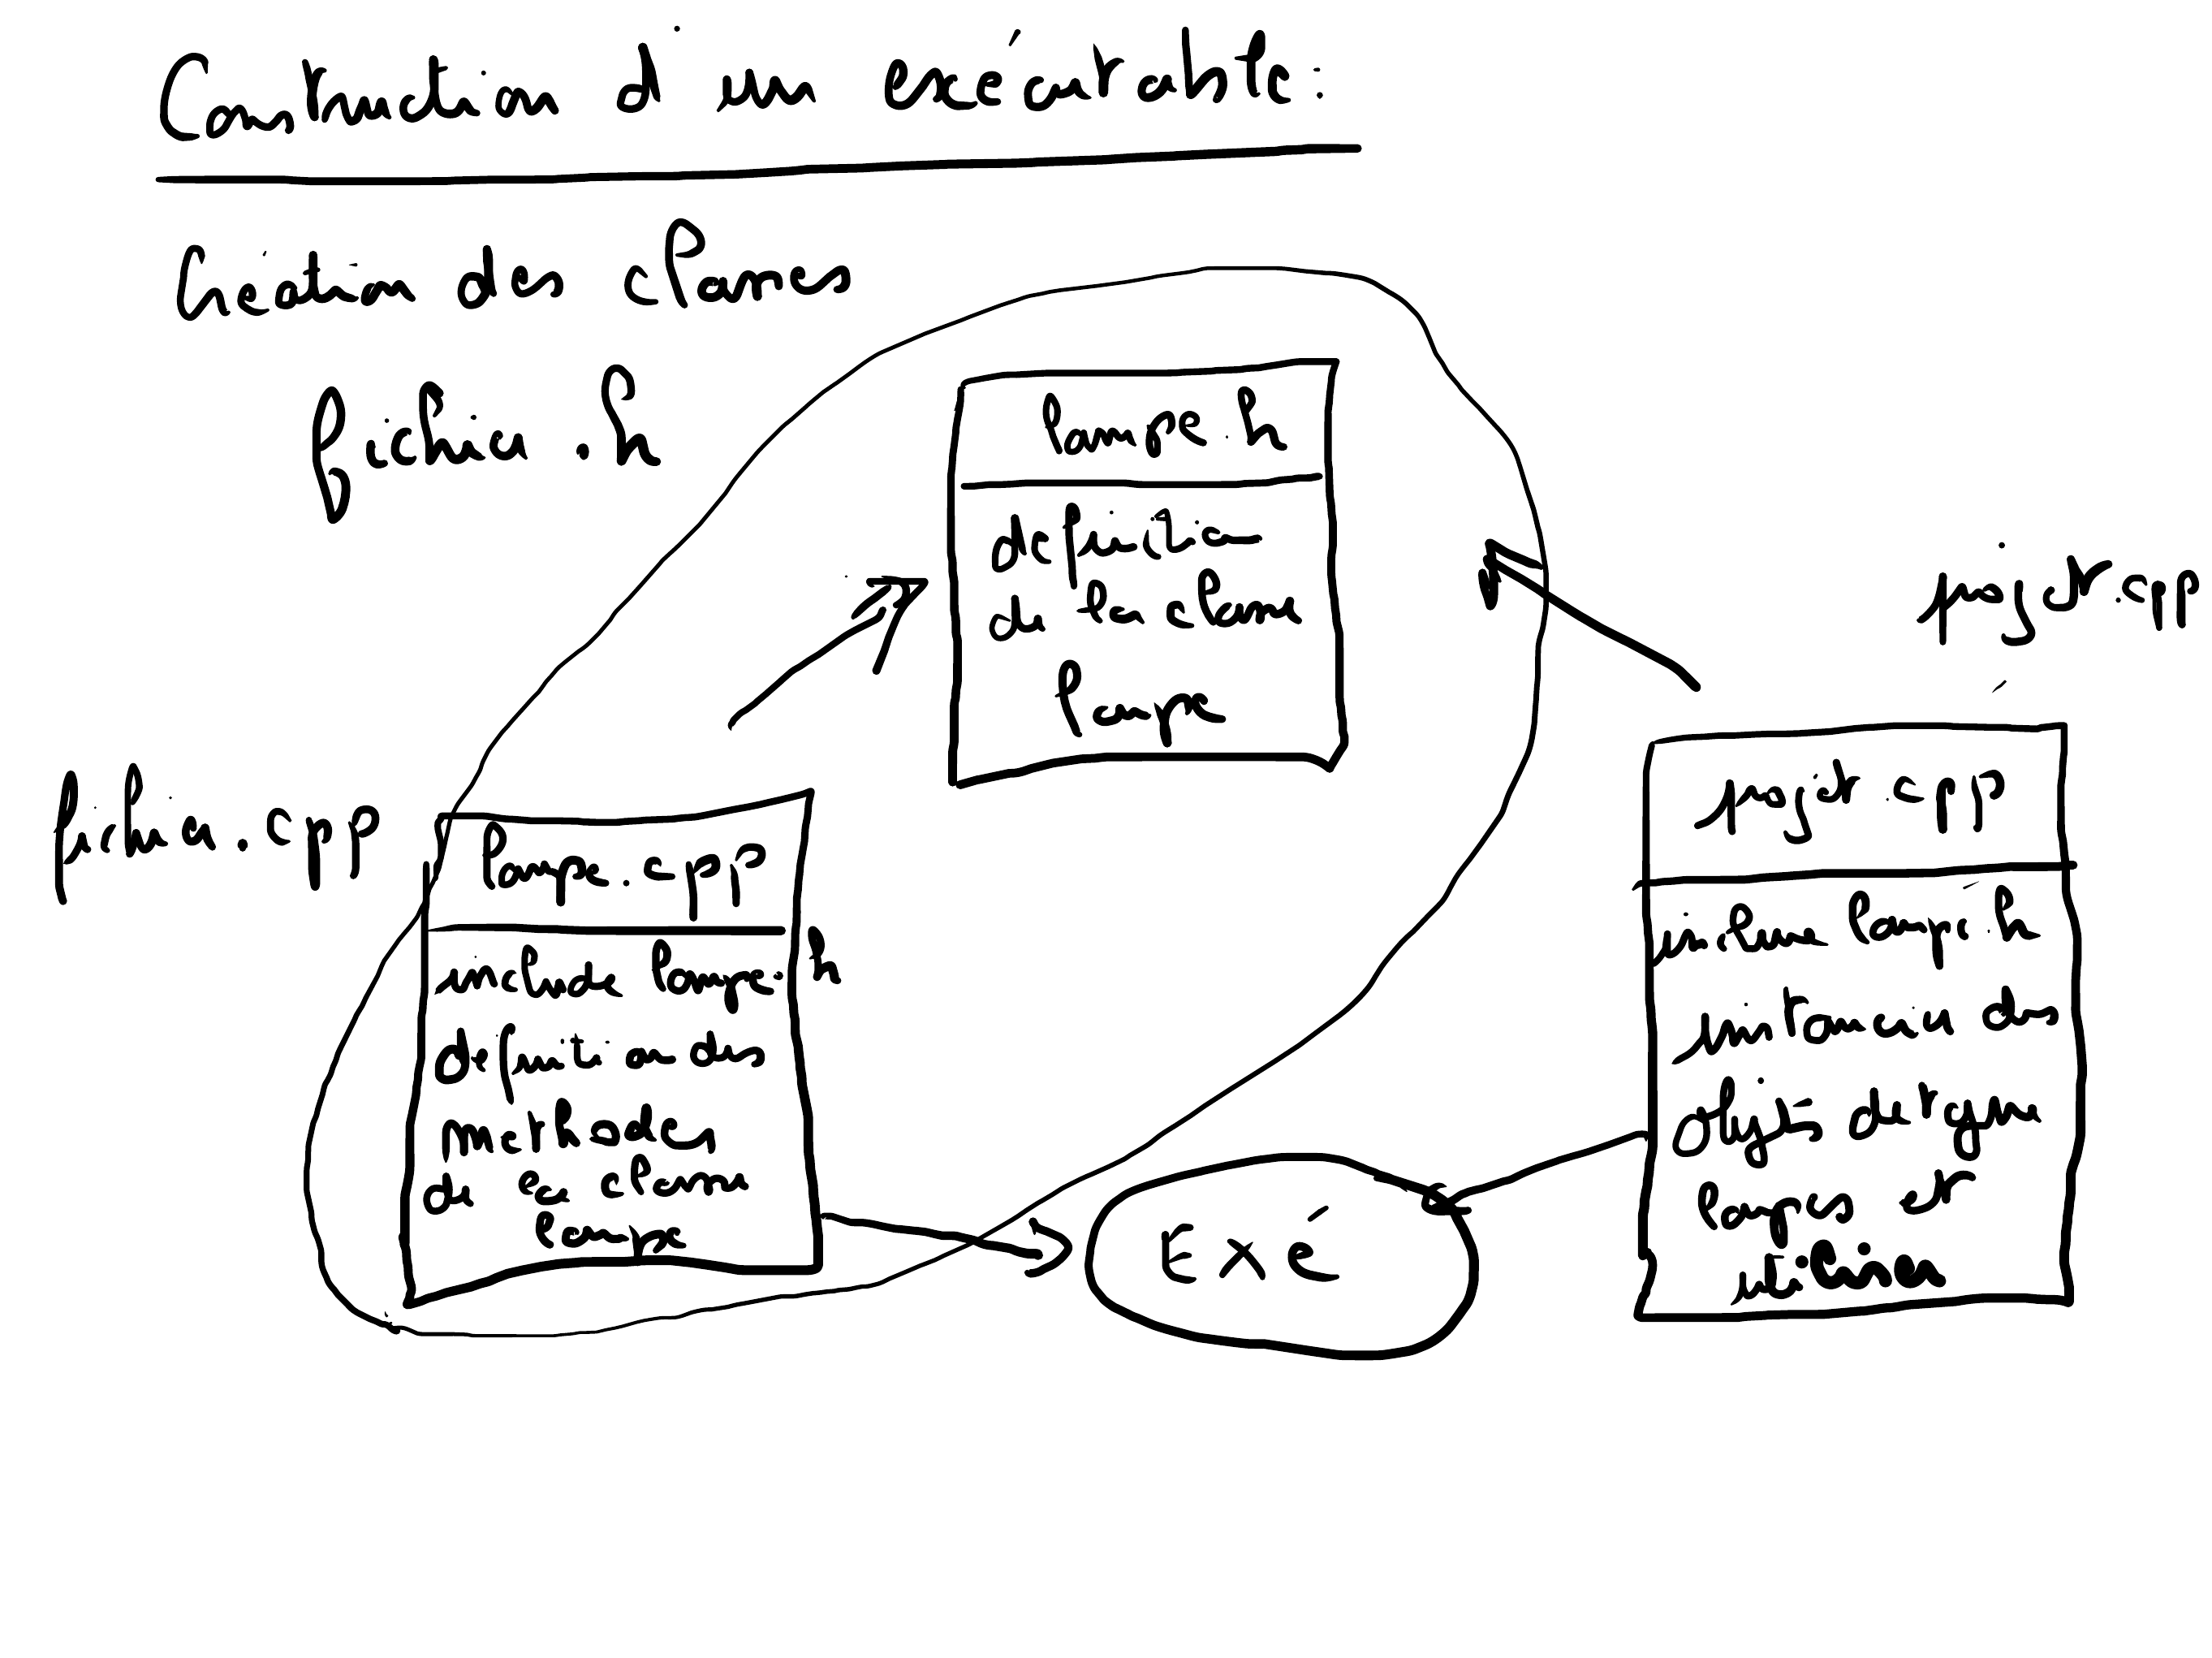 Construction d'un exécutable :
Création des classes
fichier .h
lampe.h
definition
de la classe
lampe
projet.cpp
fichier.cpp
lampe.cpp
include lampe.h
definition des
methodes
de la classe
lampe
projet.cpp
inclure lampe.h
instancier des
objets de type
lampes et
utiliser
Exe